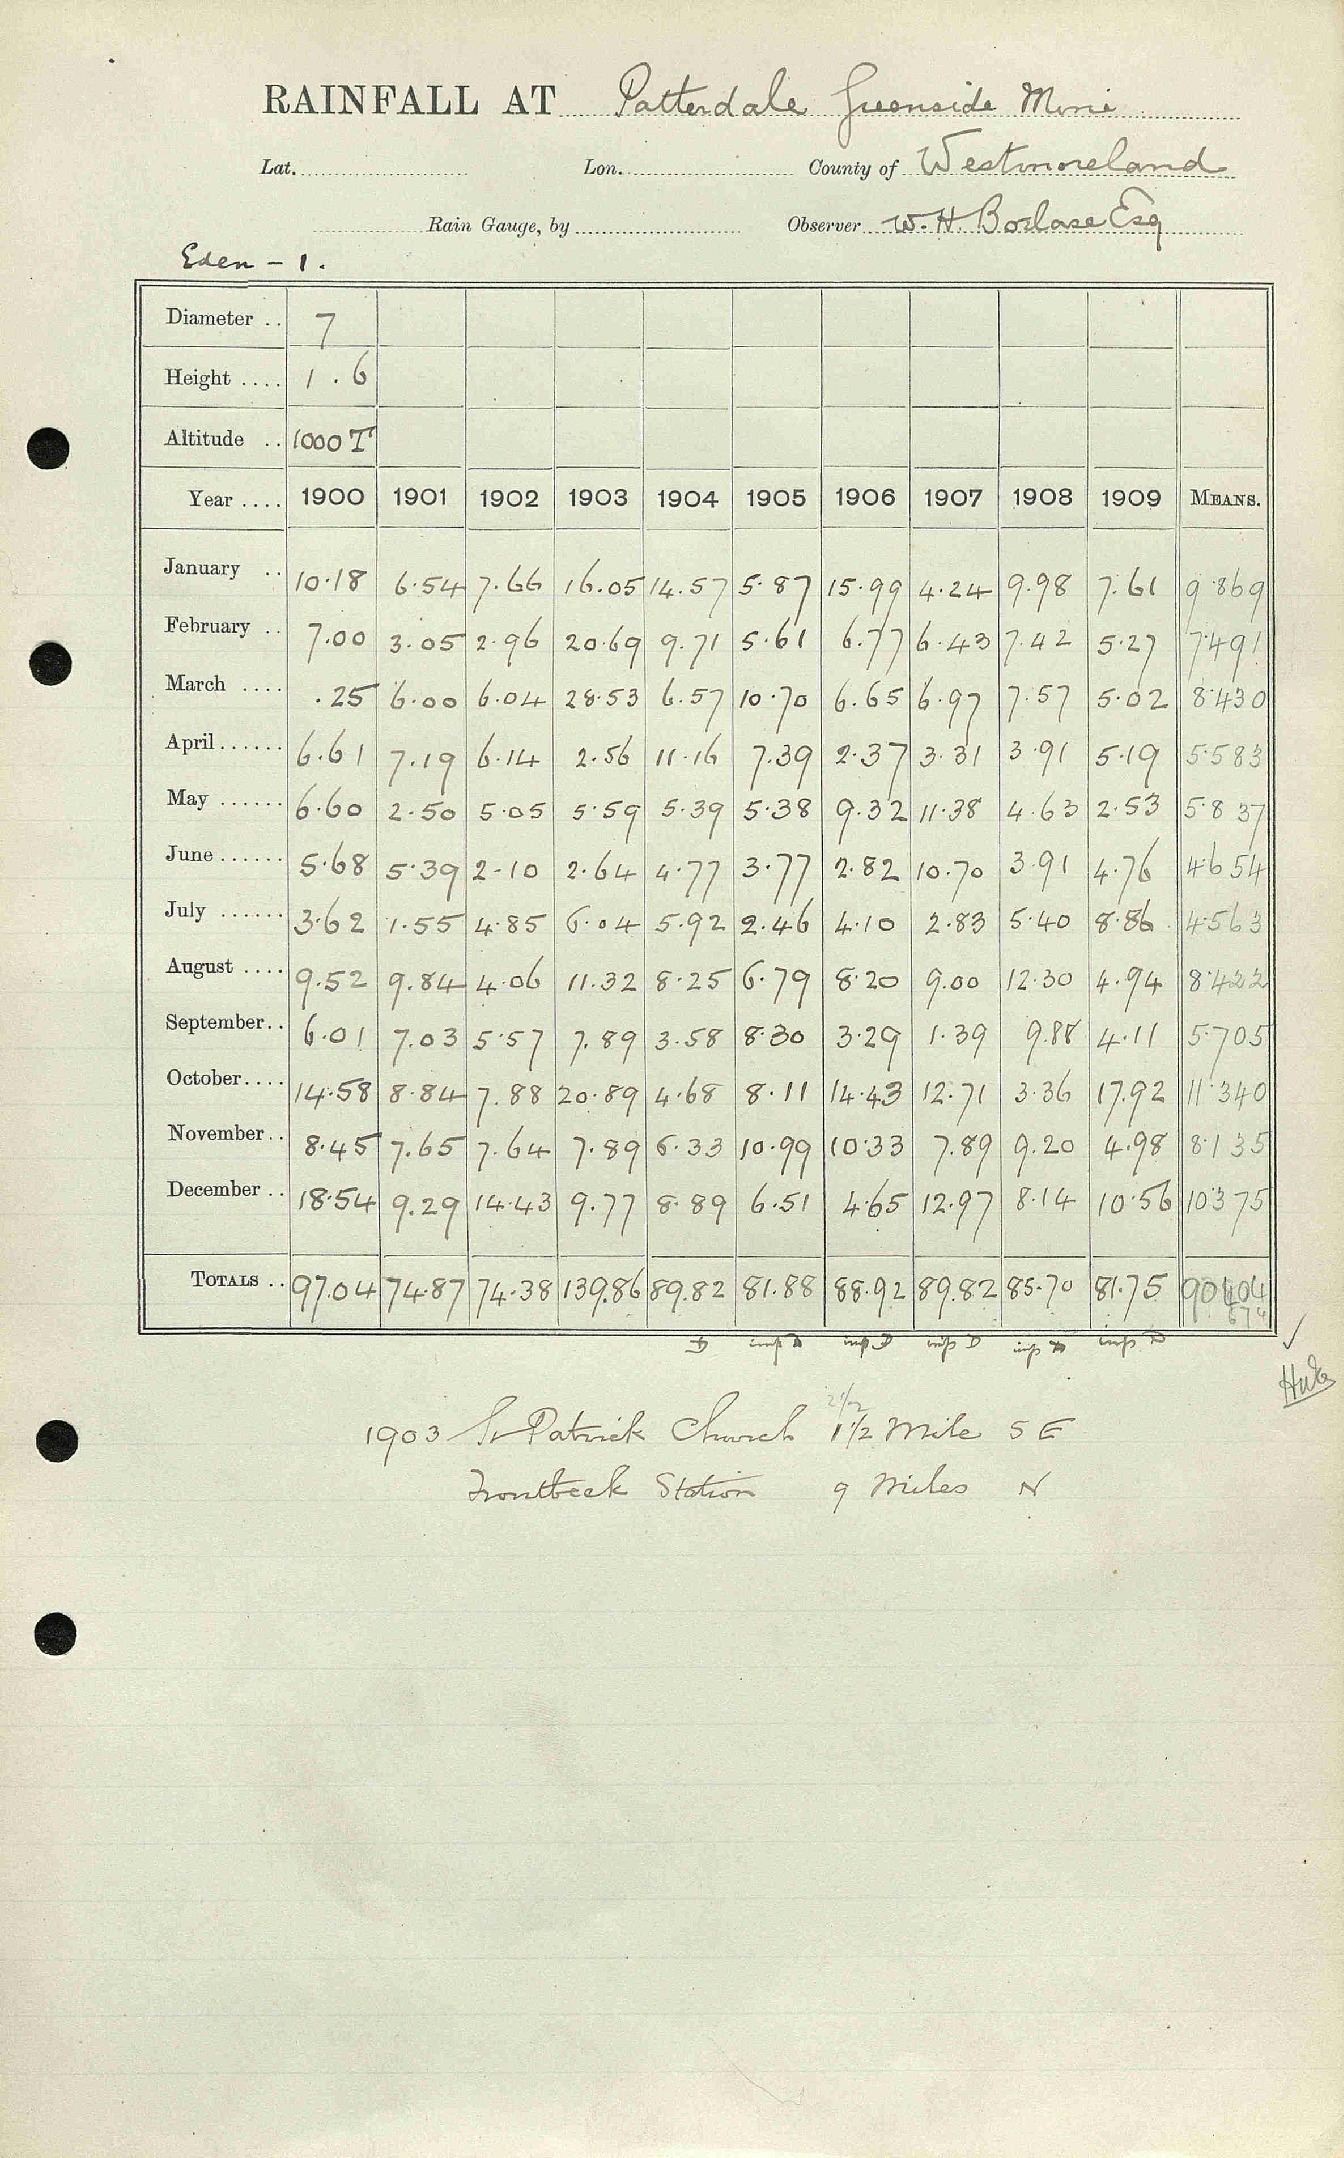 RAINFALL AT Patterdale Greenside Mine
Lat. Lon. County of Westmoreland
Rain Gauge, by Observer W. H. Borlase Esq
Eden - 1.
Diameter .. 7
Height .... 1.6
Altitude .. 1000 T
Year .... 1900 1901 1902 1903 1904 1905 1906 1907 1908 1909 MEANS.
January .. 10.18 6.54 7.66 16.05 14.57 5.87 15.99 4.24 9.98 7.61 9.869
February .. 7.00 3.05 2.96 20.69 9.71 5.61 6.77 6.43 7.42 5.27 7.491
March .... .25 6.00 6.04 28.53 6.57 10.70 6.65 6.97 7.57 5.02 8.430
April ...... 6.61 7.19 6.14 2.56 11.16 7.39 2.37 3.31 3.91 5.19 5.583
May ...... 6.60 2.50 5.05 5.59 5.39 5.38 9.32 11.38 4.63 2.53 5.837
June ...... 5.68 5.39 2.10 2.64 4.77 3.77 2.82 10.70 3.91 4.76 4.654
July ...... 3.62 1.55 4.85 6.04 5.92 2.46 4.10 2.83 5.40 8.86 4.563
August .... 9.52 9.84 4.06 11.32 8.25 6.79 8.20 9.00 12.30 4.94 8.422
September .. 6.01 7.03 5.57 7.89 3.58 8.30 3.29 1.39 9.88 4.11 5.705
October .... 14.58 8.84 7.88 20.89 4.68 8.11 14.43 12.71 3.36 17.92 11.340
November .. 8.45 7.65 7.64 7.89 6.33 10.99 10.33 7.89 9.20 4.98 8.135
December .. 18.54 9.29 14.43 9.77 8.89 6.51 4.65 12.97 8.14 10.56 10.375
TOTALS .. 97.04 74.87 74.38 139.86 89.82 81.88 88.92 89.82 85.70 81.75 90.404
674
D imp D imp D imp D imp D imp D
2 1/2
1903 St Patrick Church 1 1/2 Mile S E
Troutbeck Station 9 Miles N